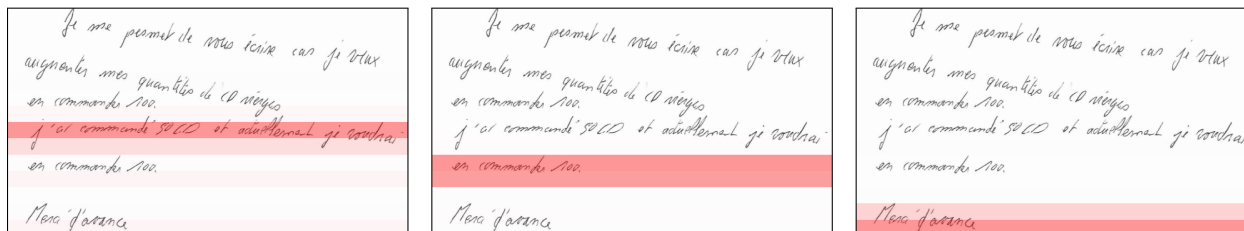 Je me permet de vous écrire car je veux
augmenter mes quantités de CD vierges
en commander 100.
j'ai commandé 50 CD et actuellement je voudrai
en commander 100.
Merci d'avance
Je me permet de vous écrire car je veux
augmenter mes quantités de CD vierges
en commander 100.
j'ai commandé 50 CD et actuellement je voudrai
en commander 100.
Merci d'avance
Je me permet de vous écrire car je veux
augmenter mes quantités de CD vierges
en commander 100.
j'ai commandé 50 CD et actuellement je voudrai
en commander 100.
Merci d'avance